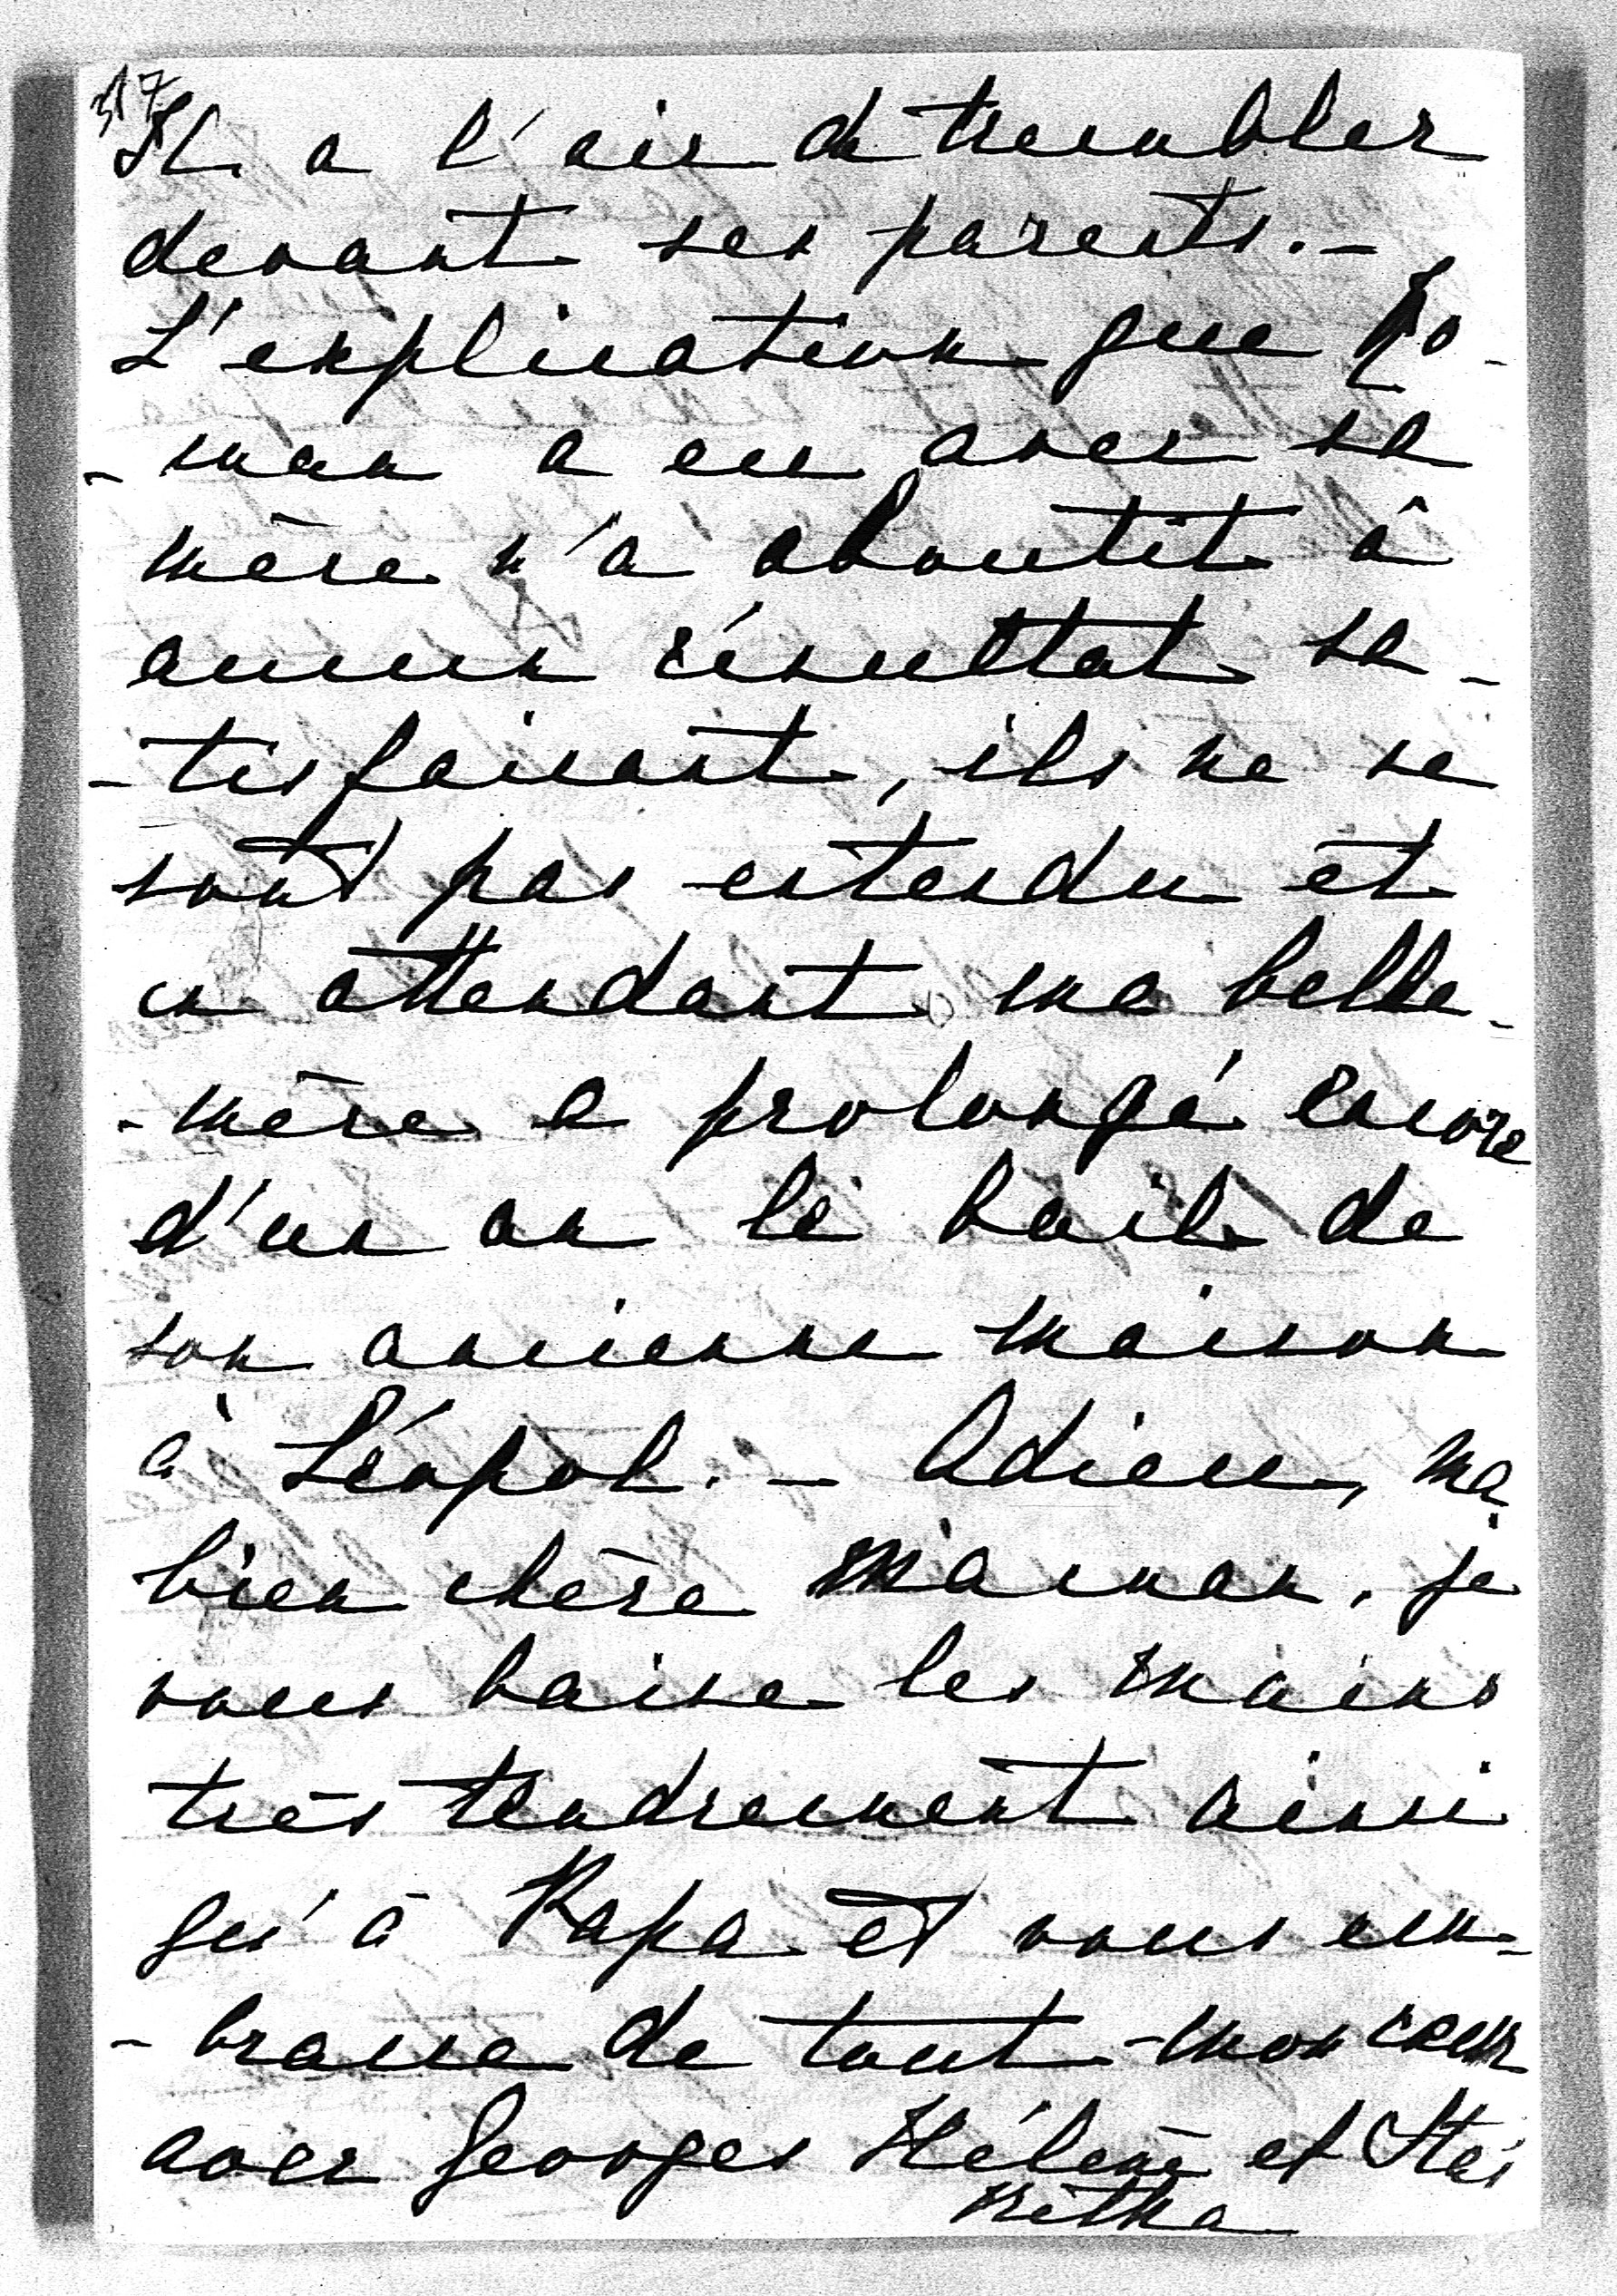 317
Il a l'air de trembler
devant ses parents. -
L'explication que Ro-
- man a eu avec sa
mère n'a aboutit à
aucun résultat sa-
- tisfaisant, ils ne se
sont pas entendu et
en attendant ma belle-
- mère a prolongé encore
d'un an le bail de
son ancienne maison
à Léopol. - Adieu, ma
bien chère Maman, je
vous baise les mains
très tendrement ainsi
qu'à Papa et vous em-
- brasse de tout mon cœur
avec Georges Hélène et Stas